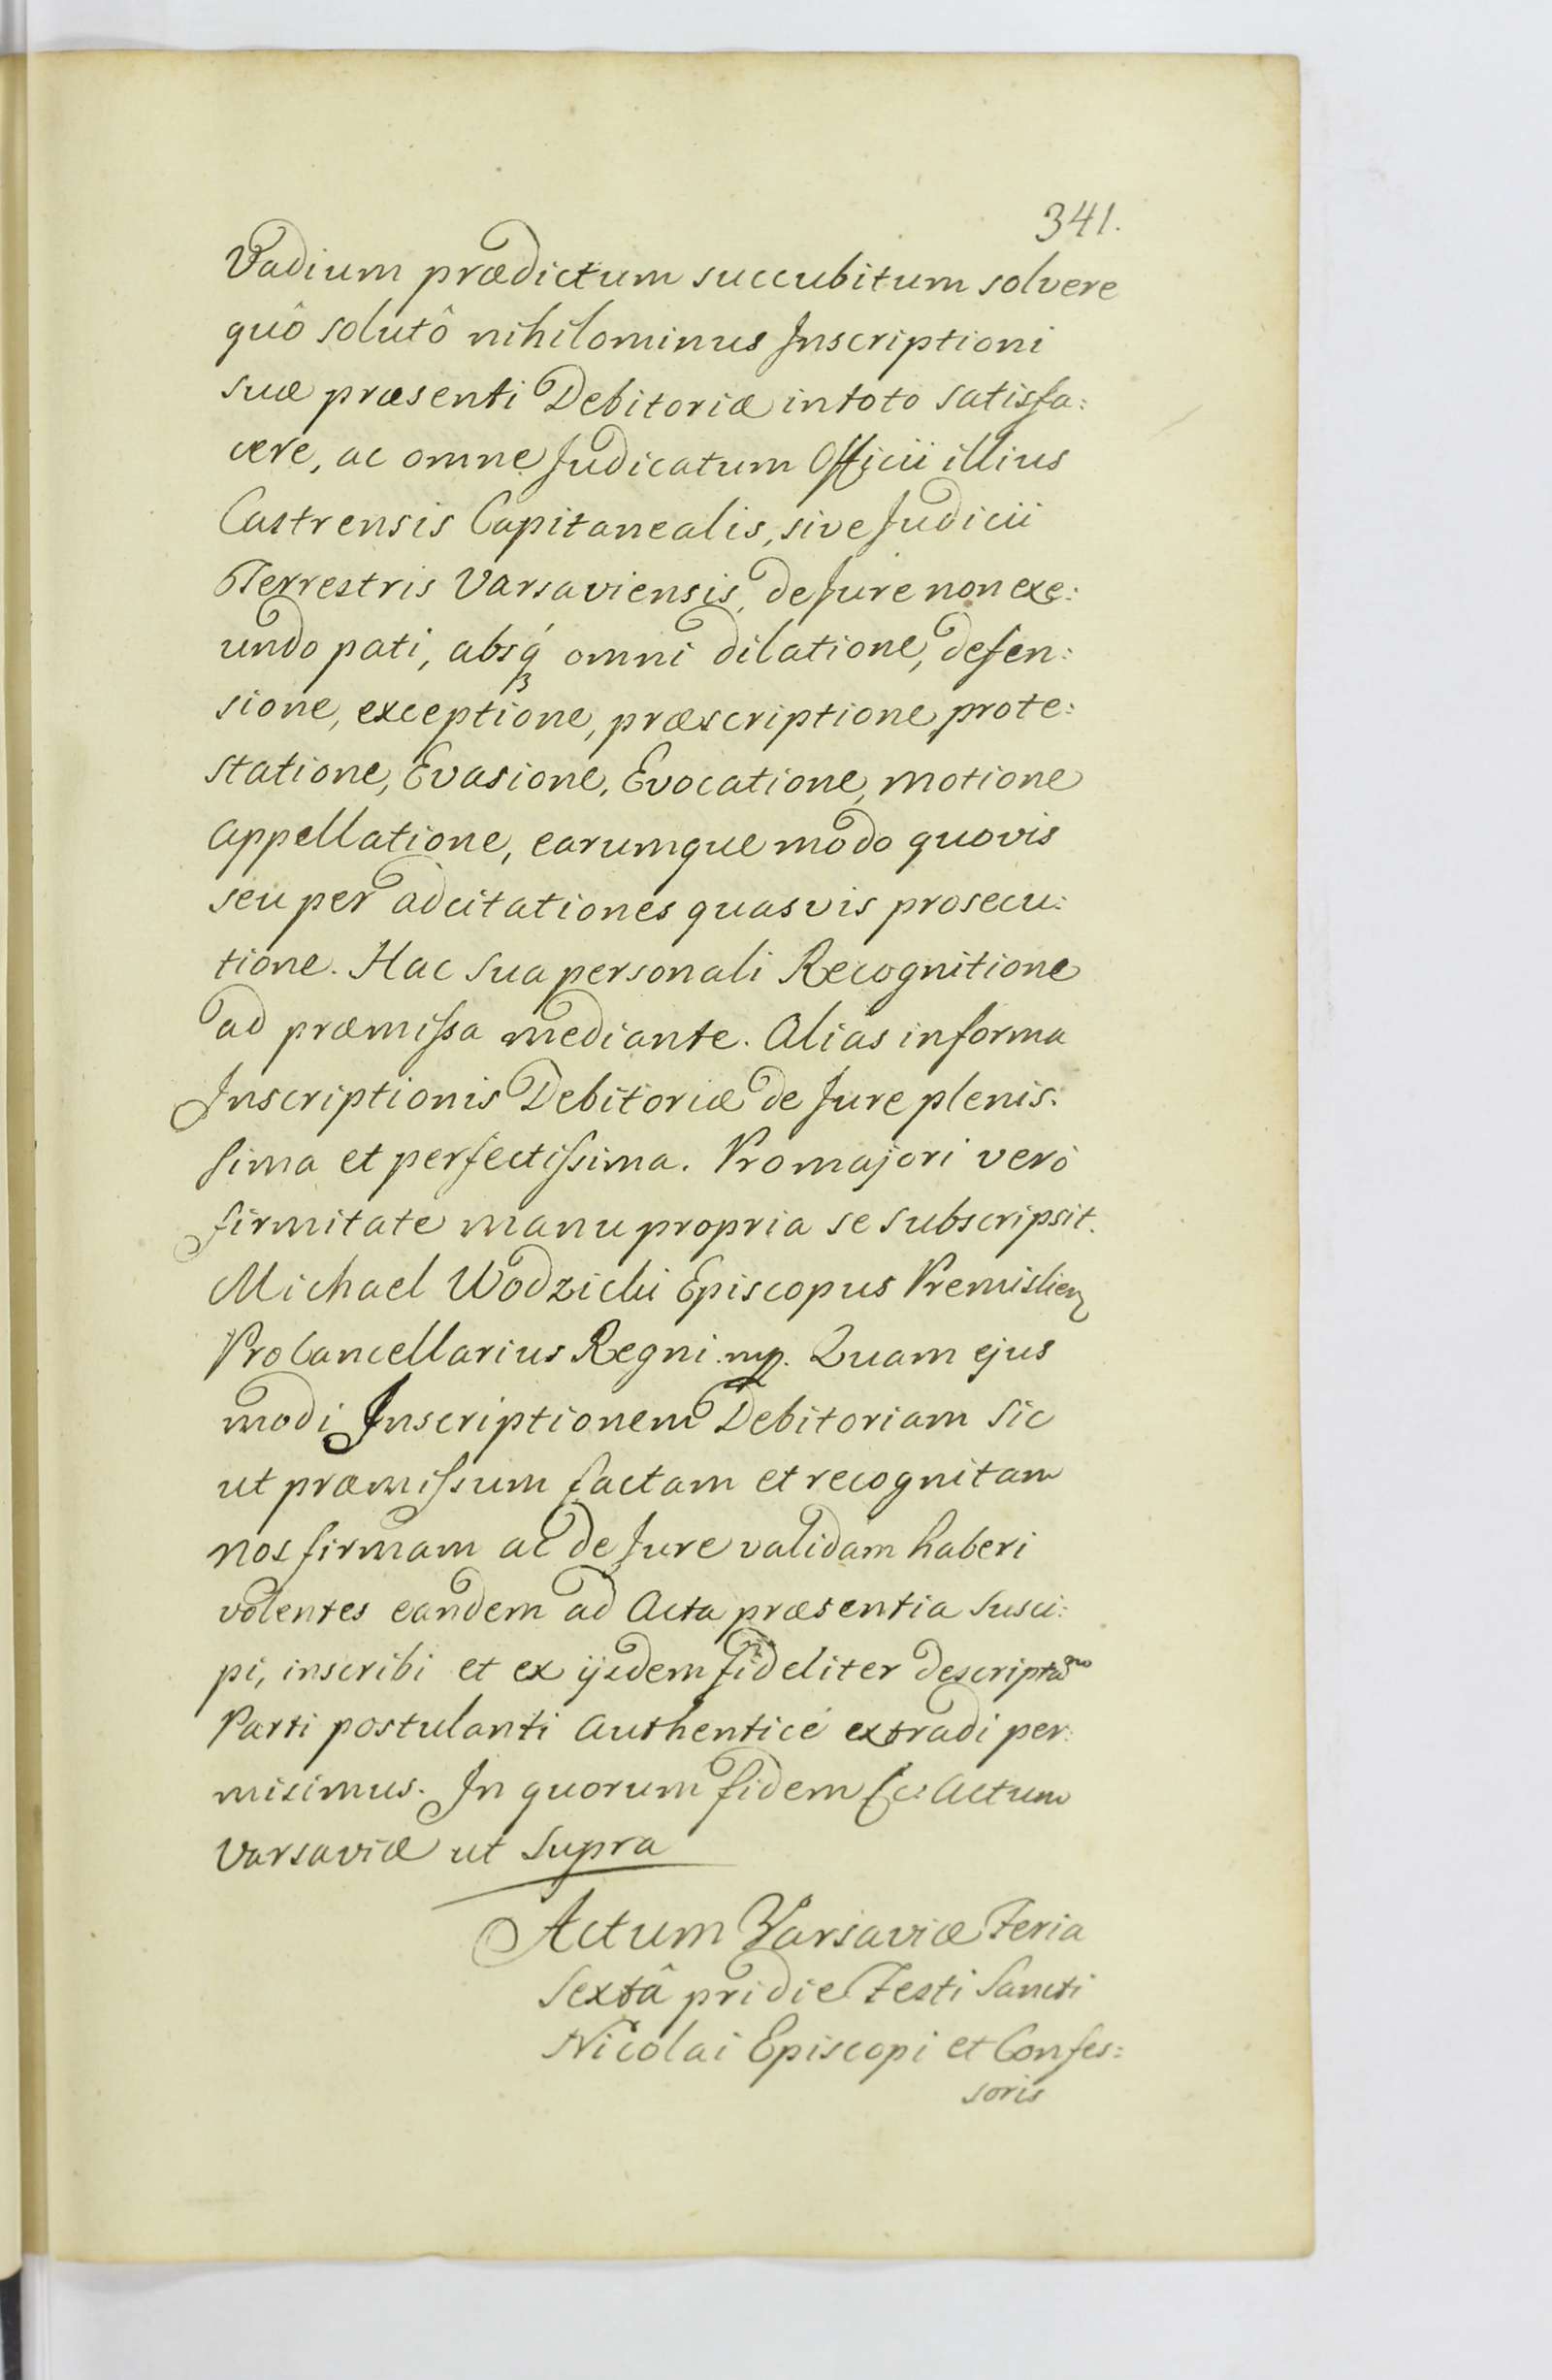 341.
Vadium prædictum succubitum solvere
quô solutô nihilominus Inscriptioni
suæ præsenti Debitoriæ in toto satisfa:
cere, ac omne Judicatum Officii illius
Castrensis Capitanealis, sive Judicii
Terrestris Varsaviensis, de Jure non exe:
undo pati, absq́ꝫ omni dilatione, defen:
sione, exceptione, præscriptione, prote:
statione, Evasione, Evocatione, motione
Appellatione, earumque modo quovis
seu per adcitationes quasvis prosecu:
tione. Hac sua personali Recognitione
ad præmissa mediante. Alias in forma
Inscriptionis Debitoriæ de Jure plenis:
sima et perfectissima. Pro majori verò
firmitate manu propria se subscripsit.
Michael Wodzicki Episcopus Premislien
ProCancellarius Regni mp. Quam ejus
modi Inscriptionem Debitoriam sic
ut præmissum factam et recognitam
nos firmam ac de Jure validam haberi
volentes eandem ad Acta præsentia susci:
pi, inscribi et ex ijsdem fideliter descriptam
Parti postulanti Authenticé extradi per:
misimus. In quorum fidem &c: Actum
Varsaviæ ut supra
Actum Varsaviæ Feria
Sextâ pridie Festi Sancti
Nicolai Episcopi et Confes:
soris